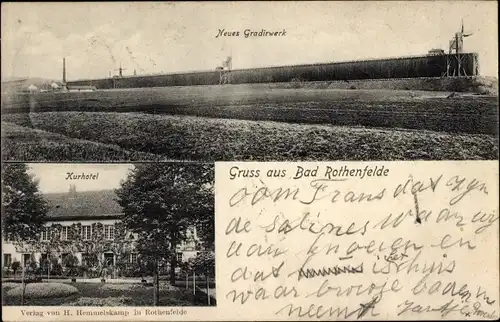 Neues Gradirwerk
Kurhotel
Gruss aus Bad Rothenfelde
oom Frans dat zyn
de salines waar wy
dan knoeien en
dat is het schuis
waar broeje baden
neemt
Verlag von H. Hemmelskamp in Rothenfelde